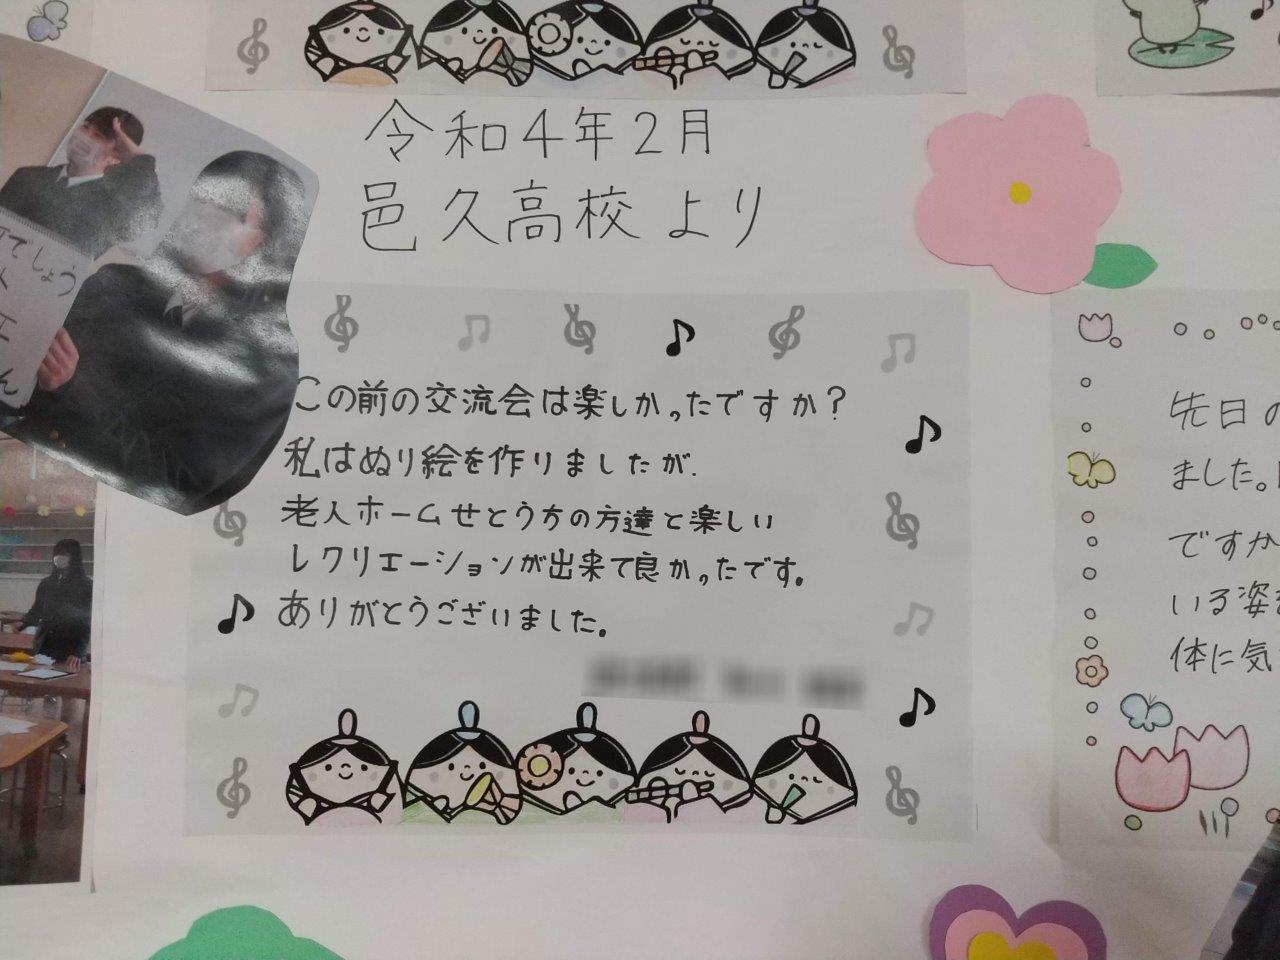 令和4年2月
邑久高校より
この前の交流会は楽しかったですか？
私はぬり絵を作りましたが、
老人ホームせとうちの方達と楽しい
レクリエーションが出来て良かったです。
ありがとうございました。
でしょう
ん
先日の
ました。
ですか
いる姿を
体に気